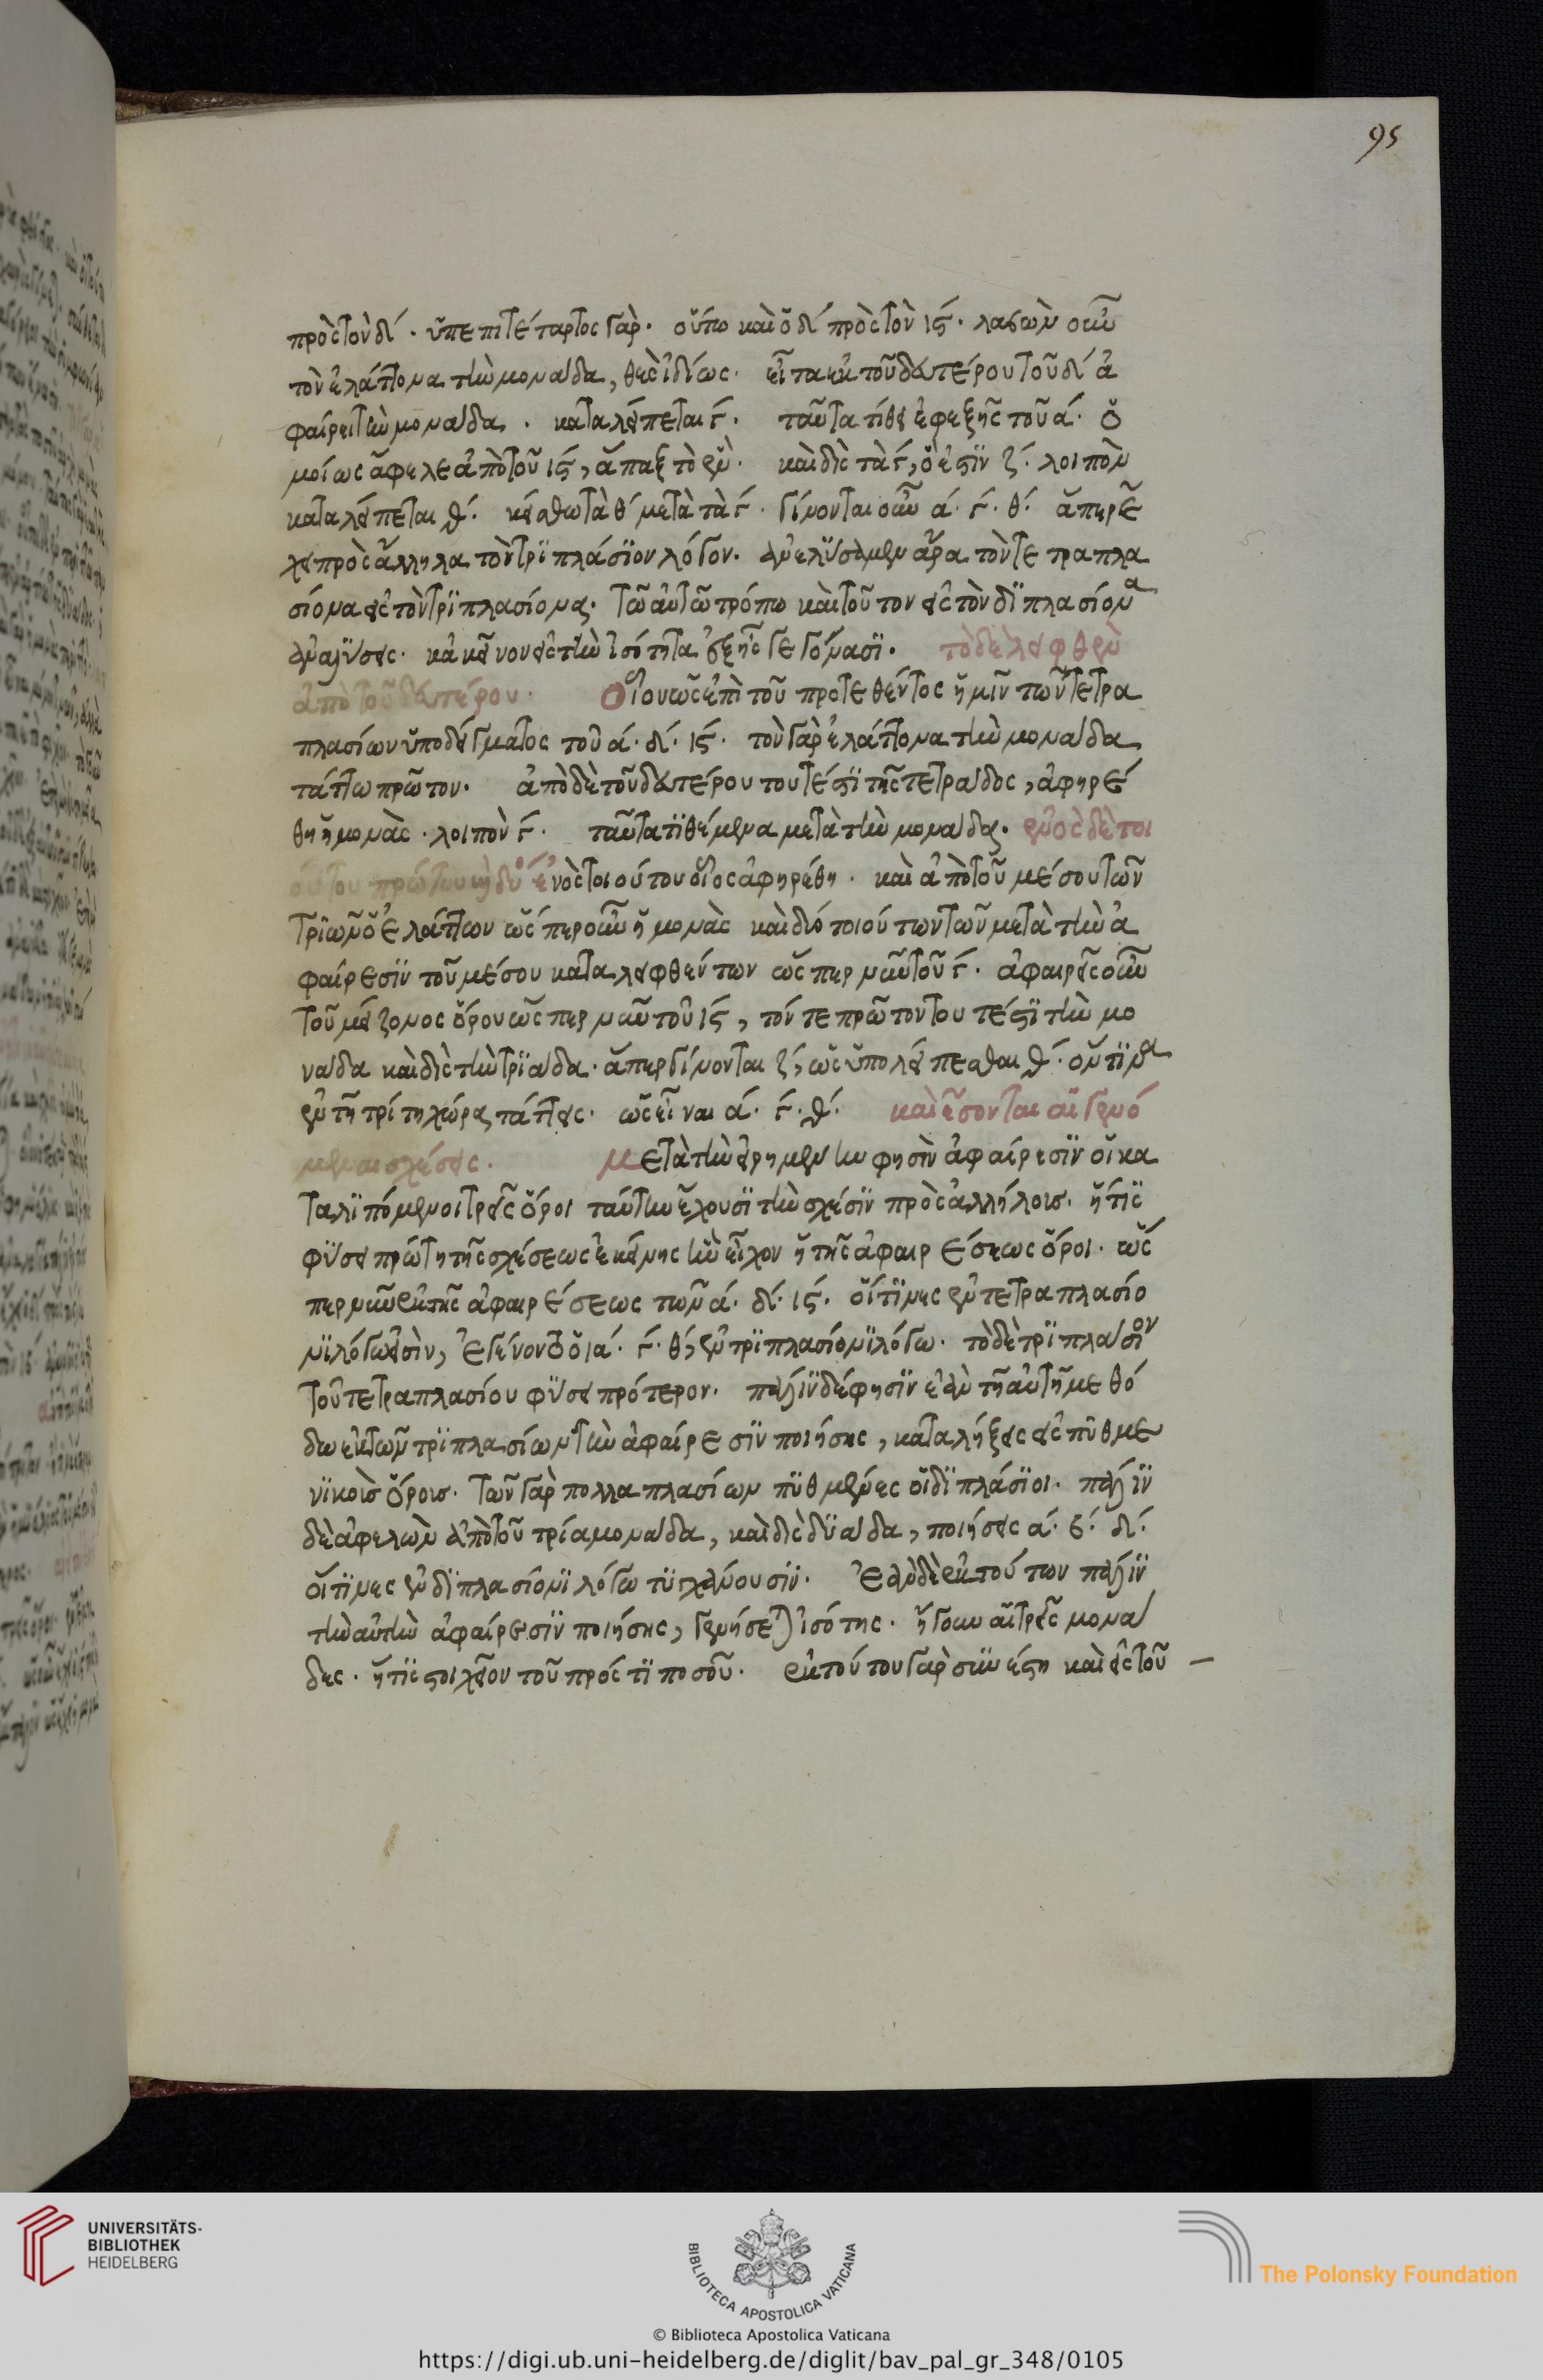 95
πρὸς τὸν δ´. ὑπεπιτέταρτος γάρ. οὕτω καὶ ὁ δ´ πρὸς τὸν ις´. λαβὼν οὖν
τὸν ἐλάττονα τὴν μονάδα, θὲς ἰδίως. εἶτα ἐκ τοῦ δευτέρου τοῦ δ´ ἀ
φαίρει τὴν μονάδα. καταλείπεται γ´. ταῦτα τίθει ἐφεξῆς τοῦ α´. ὁ
μοίως ἄφελε ἀπὸ τοῦ ις´, ἅπαξ τὸ ἓν. καὶ δὶς τὰ γ´, ὅ ἐστϊν ζ´. λοιπὸν
καταλείπεται θ´. κείσθω τὰ θ´ μετὰ τὰ γ´. γίνονται οὖν α´. γ´. θ´. ἅπερ ἔ
χει πρὸς ἄλληλα τὸν τρϊπλάσϊον λόγον. ἀνελύσαμεν ἄρα τὸν τετραπλα
σίονα εἰς τὸν τρϊπλασίονα. τῶ αὐτῶ τρόπω καὶ τοῦτον εἰς τὸν δϊπλασίονα
ἀναλύσεις. κἀκεῖνον εἰς τὴν ἰσότητα ἑξῆς γεγόνασϊ. τὸ δὲ λειφθὲν
ἀπὸ τοῦ δευτέρου. Οἷον ὡς ἐπὶ τοῦ προτεθέντος ἡμῖν τῶν τετρα
πλασίων ὑποδείγματος τοῦ α´. δ´. ις´. τὸν γὰρ ἐλάττονα τὴν μονάδα
τάττω πρῶτον. ἀπὸ δὲ τοῦ δευτέρου τουτέστϊ τῆς τετράδος, ἀφηρέ
θη ἡ μονὰς. λοιπὸν γ´. ταῦτα τϊθέμενα μετὰ τὴν μονάδα. ἑνὸς δὲ τοι
ούτου πρώτου καὶ δύο ἑνὸς τοιούτου οἷος ἀφηρέθη. καὶ ἀπὸ τοῦ μέσου τῶν
τρϊῶν ὁ ἐλάττων ὥσπερ οὖν ἡ μονὰς καὶ δύο τοιούτων τῶν μετὰ τὴν ἀ
φαίρεσϊν τοῦ μέσου καταλειφθέντων ὥσπερ νῦν τοῦ γ´. ἀφαιρεῖς οὖν
τοῦ μείζονος ὅρου ὥσπερ νῦν τοῦ ις´, τόν τε πρῶτον τουτέστϊ τὴν μο
νάδα καὶ δὶς τὴν τρϊάδα. ἅπερ γίνονται ζ´, ὡς ὑπολείπεσθαι θ´. οὕτϊνα
ἐν τῆ τρίτη χώρα τάττεις. ὡς εἶναι α´. γ´. θ´. καὶ ἔσονται αἱ γενό
μεναι σχέσεις. Μετὰ τὴν εἰρημένην φησὶν ἀφαίρεσϊν οἱ κα
ταλϊπόμενοι τρεῖς ὅροι ταύτην ἔχουσϊ τὴν σχέσϊν πρὸς ἀλλήλοις. ἥτϊς
φύσει πρώτη τῆς σχέσεως ἐκείνης ἣν εἶχον ἢ τῆς ἀφαιρέσεως ὅροι. ὥσ
περ νῦν ἐκ τῆς ἀφαιρέσεως τῶν α´. δ´. ις´. οἵτϊνες ἐν τετραπλασίο
νϊ λόγω εἰσὶν, ἐγένοντο οἱ α´. γ´. θ´, ἐν τρϊπλασίονϊ λόγω. τὸ δὲ τρϊπλάσιον
τοῦ τετραπλασίου φύσει πρότερον. πάλϊν δέ φησϊν ἐὰν τῆ αὐτῆ μεθό
δω ἐκ τῶν τρϊπλασίων τὴν ἀφαίρεσϊν ποιήσης, καταλήξεις εἰς πυθμε
νϊκοὶς ὅροις. τῶν γὰρ πολλαπλασίων πυθμένες οἱ δϊπλάσϊοι. πάλϊν
δὲ ἀφελὼν ἀπὸ τοῦ τρία μονάδα, καὶ δὶς δυάδα, ποιήσεις α´. β´. δ´.
οἵτϊνες ἐν δϊπλασίονϊ λόγω τυγχάνουσϊν. ἐὰν δὲ ἐκ τούτων πάλϊν
τὴν αὐτὴν ἀφαίρεσϊν ποιήσης, γενήσεται ἰσότης. ἤγουν αἱ τρεῖς μονά
δες. ἥτϊς στοιχεῖον τοῦ πρός τϊ ποσοῦ. ἐκ τούτου γὰρ συνέστη καὶ εἰς τοῦ –
UNIVERSITÄTS-
BIBLIOTHEK
HEIDELBERG
BIBLIOTECA APOSTOLICA VATICANA
The Polonsky Foundation
© Biblioteca Apostolica Vaticana
https://digi.ub.uni-heidelberg.de/diglit/bav_pal_gr_348/0105